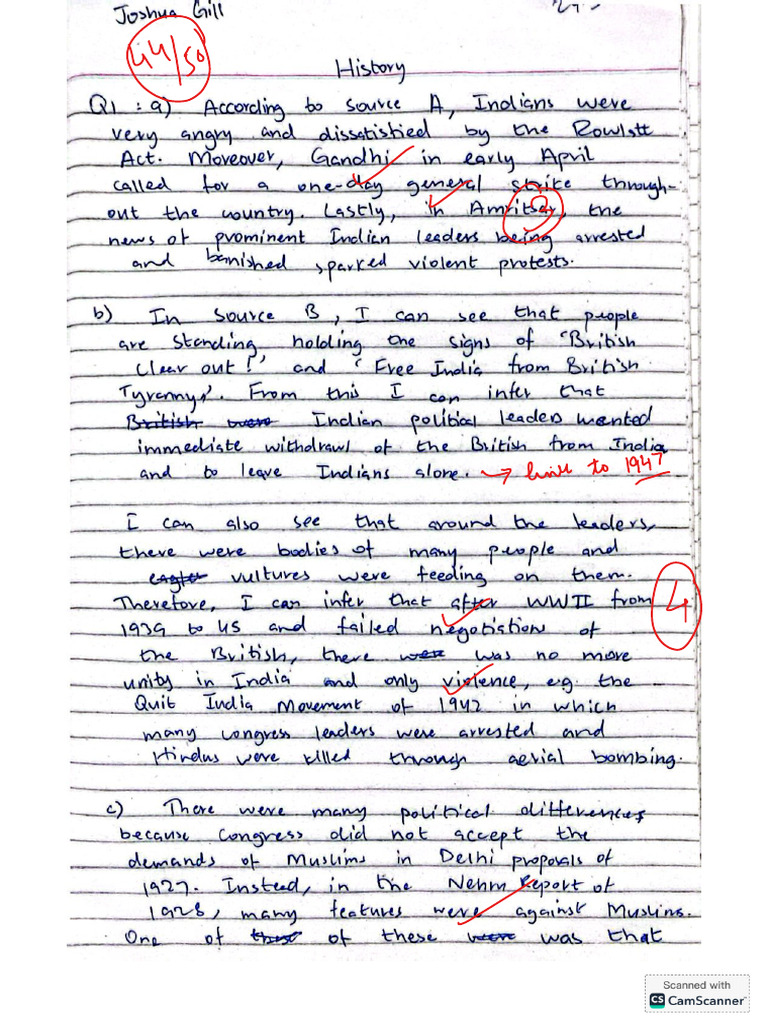 Joshua Gill
44/50
History
Q1 : a) According to source A, Indians were
very angry and dissatisfied by the Rowlatt
Act. Moreover, Gandhi in early April
called for a one-day general strike through-
out the country. Lastly, in Amritsar, the
news of prominent Indian leaders being arrested
and banished sparked violent protests.
3
b) In Source B, I can see that people
are standing holding the signs of 'British
Clear out!' and 'Free India from British
Tyranny'. From this I can infer that
British were Indian political leaders wanted
immediate withdrawl of the British from India
and to leave Indians alone. → link to 1947
I can also see that around the leaders,
there were bodies of many people and
eagles vultures were feeding on them.
Therefore, I can infer that after WWII from
4
1939 to 45 and failed negotiation of
the British, there were was no more
unity in India and only violence, e.g. the
Quit India Movement of 1942 in which
many congress leaders were arrested and
Hindus were killed through aerial bombing.
c) There were many political differences
because Congress did not accept the
demands of Muslims in Delhi proposals of
1927. Instead, in the Nehru Report of
1928, many features were against Muslims.
One of these of these were was that
Scanned with
CS CamScanner